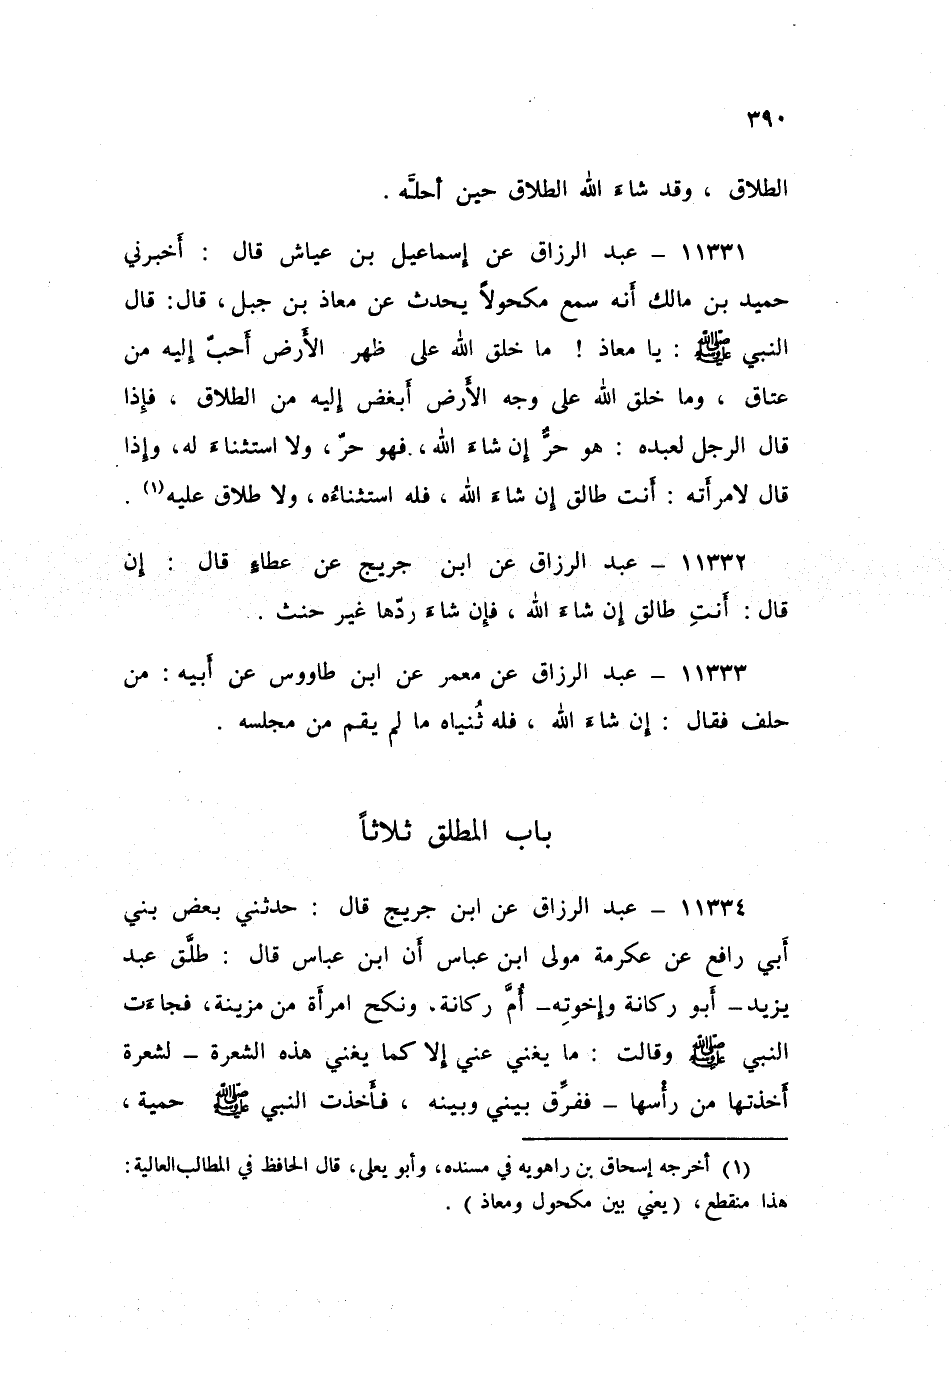 ٣٩٠
الطلاق ، وقد شاءَ الله الطلاق حين أحلَّه .
١١٣٣١ – عبد الرزاق عن إسماعيل بن عياش قال : أَخبرني
حميد بن مالك أَنه سمع مكحولاً يحدث عن معاذ بن جبل ، قال : قال
النبي ﷺ : يا معاذ ! ما خلق الله على ظهر الأَرض أَحبّ إليه من
عتاق ، وما خلق الله على وجه الأَرض أَبغض إليه من الطلاق ، فإذا
قال الرجل لعبده : هو حرٌّ إن شاءَ الله ، فهو حرّ ، ولا استثناءَ له ، وإذا
قال لامرأَته : أَنت طالق إن شاءَ الله ، فله استثناءُه ، ولا طلاق عليه(١) .
١١٣٣٢ – عبد الرزاق عن ابن جريج عن عطاءٍ قال : إن
قال : أَنتِ طالق إن شاءَ الله ، فإن شاءَ ردّها غير حنث .
١١٣٣٣ – عبد الرزاق عن معمر عن ابن طاووس عن أَبيه : من
حلف فقال : إن شاءَ الله ، فله ثُنياه ما لم يقم من مجلسه .
باب المطلق ثلاثاً
١١٣٣٤ – عبد الرزاق عن ابن جريج قال : حدثني بعض بني
أَبي رافع عن عكرمة مولى ابن عباس أَن ابن عباس قال : طلَّق عبد
يزيد – أَبو ركانة وإخوتِه – أُمَّ ركانة . ونكح امرأَة من مزينة ، فجاءَت
النبي ﷺ وقالت : ما يغني عني إلا كما يغني هذه الشعرة – لشعرة
أَخذتها من رأْسها – ففرِّق بيني وبينه ، فأَخذت النبي ﷺ حمية ،
(١) أخرجه إسحاق بن راهويه في مسنده ، وأبو يعلى ، قال الحافظ في المطالب العالية :
هذا منقطع ، ( يعني بين مكحول ومعاذ ) .